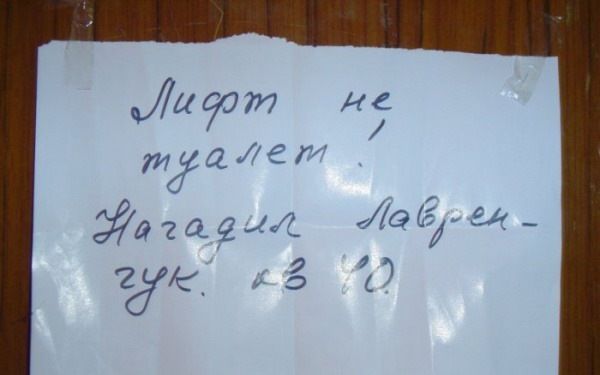 Лифт не
туалет!
Нагадил Лаврен-
чук. кв 40.